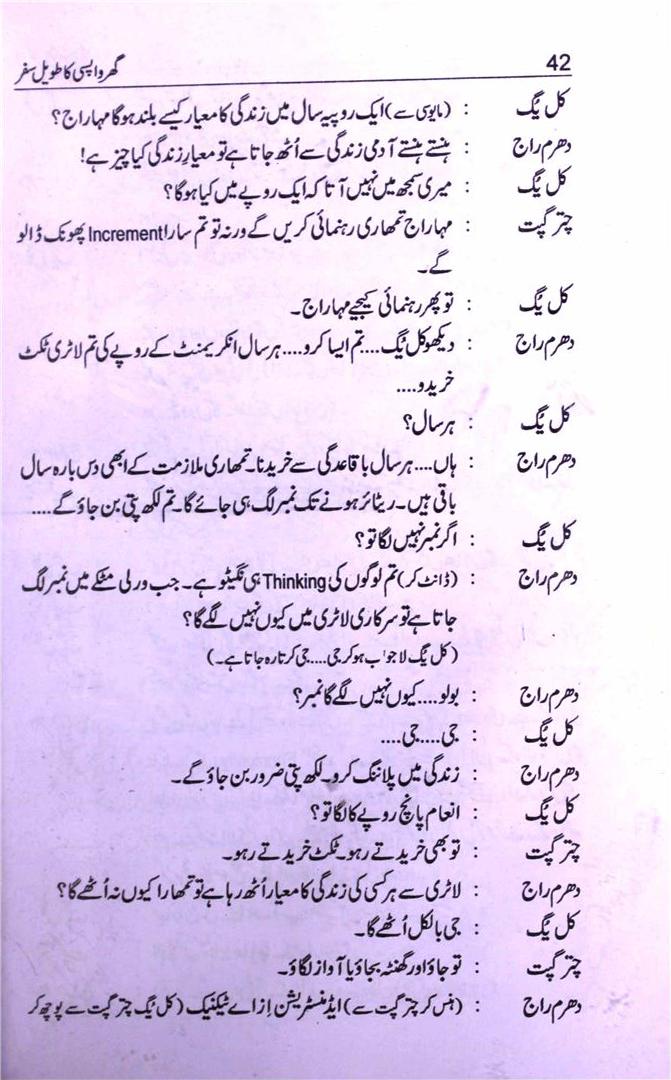 42
گھر واپسی کا طویل سفر
کل یُگ : (مایوسی سے) ایک روپیہ سال میں زندگی کا معیار کیسے بلند ہوگا مہاراج؟
دھرم راج : ہنستے ہنستے آدمی زندگی سے اُٹھ جاتا ہے تو معیارِ زندگی کیا چیز ہے!
کل یُگ : میری سمجھ میں نہیں آتا کہ ایک روپے میں کیا ہوگا؟
چتر گپت : مہاراج تمھاری رہنمائی کریں گے ورنہ تو تم سارا Increment پھونک ڈالو
گے۔
کل یُگ : تو پھر رہنمائی کیجیے مہاراج۔
دھرم راج : دیکھو کل یُگ.... تم ایسا کرو.... ہر سال انکریمنٹ کے روپے کی تم لاٹری ٹکٹ
خریدو....
کل یُگ : ہر سال؟
دھرم راج : ہاں.... ہر سال باقاعدگی سے خریدنا۔ تمھاری ملازمت کے ابھی دس بارہ سال
باقی ہیں۔ ریٹائر ہونے تک نمبر لگ ہی جائے گا۔ تم لکھ پتی بن جاؤ گے....
کل یُگ : اگر نمبر نہیں لگا تو؟
دھرم راج : (ڈانٹ کر) تم لوگوں کی Thinking ہی نگیٹو ہے۔ جب ورلی مٹکے میں نمبر لگ
جاتا ہے تو سرکاری لاٹری میں کیوں نہیں لگے گا؟
(کل یگ لاجواب ہو کر جی.... جی کرتا رہ جاتا ہے۔)
دھرم راج : بولو.... کیوں نہیں لگے گا نمبر؟
کل یُگ : جی.... جی....
دھرم راج : زندگی میں پلاننگ کرو۔ لکھ پتی ضرور بن جاؤ گے۔
کل یُگ : انعام پانچ روپے کا لگا تو؟
چتر گپت : تو بھی خریدتے رہو۔ ٹکٹ خریدتے رہو۔
دھرم راج : لاٹری سے ہر کسی کی زندگی کا معیار اُٹھ رہا ہے تو تمھارا کیوں نہ اُٹھے گا؟
کل یُگ : جی بالکل اُٹھے گا۔
چتر گپت : تو جاؤ اور گھنٹہ بجاؤ یا آواز لگاؤ۔
دھرم راج : (ہنس کر چتر گپت سے) ایڈمنسٹریشن اِز اے ٹیکنیک (کل یگ چتر گپت سے پوچھ کر